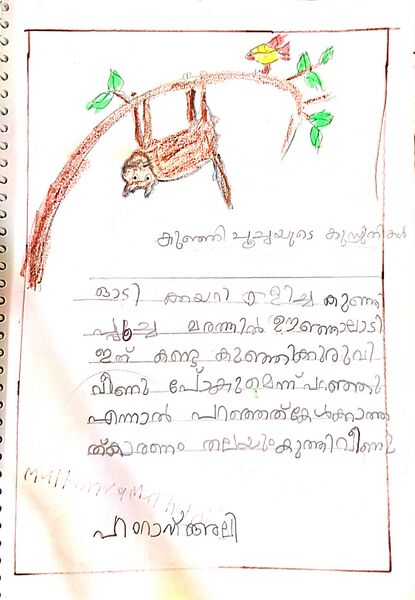 കുഞ്ഞി പൂച്ചയുടെ കുസൃതികൾ
ഓടി ക്കയറി ഒളിച്ച കുഞ്ഞു
പ്പൂച്ച മരത്തിൽ ഊഞ്ഞാലാടി
ഇത് കണ്ടു കുഞ്ഞിക്കുരുവി
വീണു പോകുമെന്ന് പറഞ്ഞു
എന്നാൽ പറഞ്ഞത്കേൾക്കാത്ത
ത്കാരണം തലയുംകുത്തിവീണു
ഫർഹാന് അലി